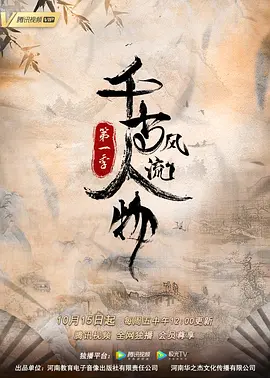 腾讯视频 VIP
千古风流人物
第一季
10月15日起 每周五中午12:00更新
腾讯视频 全网独播 会员尊享
独播平台： 腾讯视频 极光TV
出品单位：河南教育电子音像出版社有限责任公司 河南华之杰文化传播有限公司